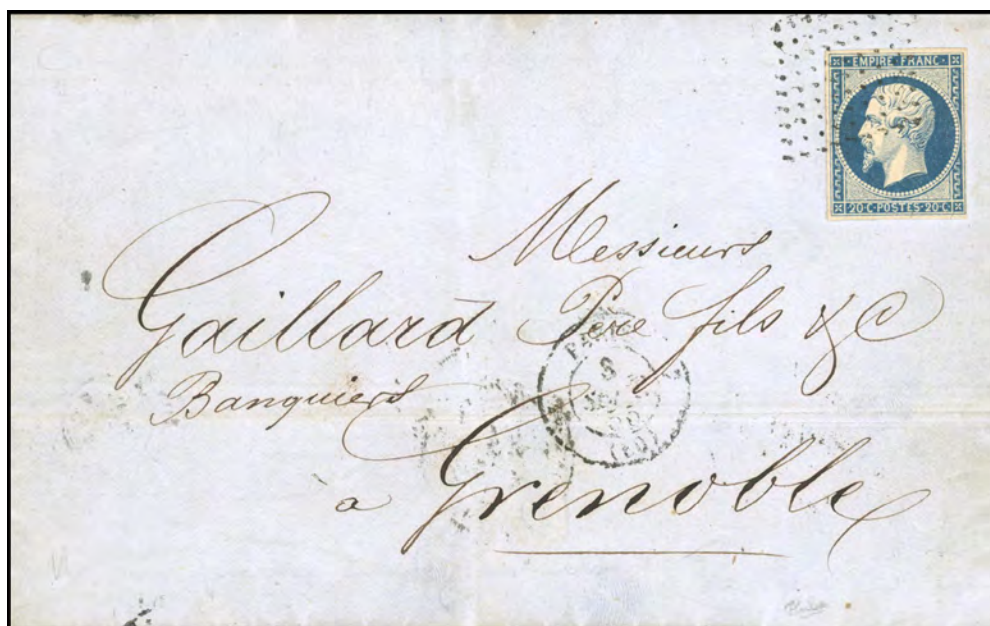 EMPIRE FRANC
20·C·POSTES·20·C
Messieurs
Gaillard Père fils & C
Banquiers
à Grenoble
(60)